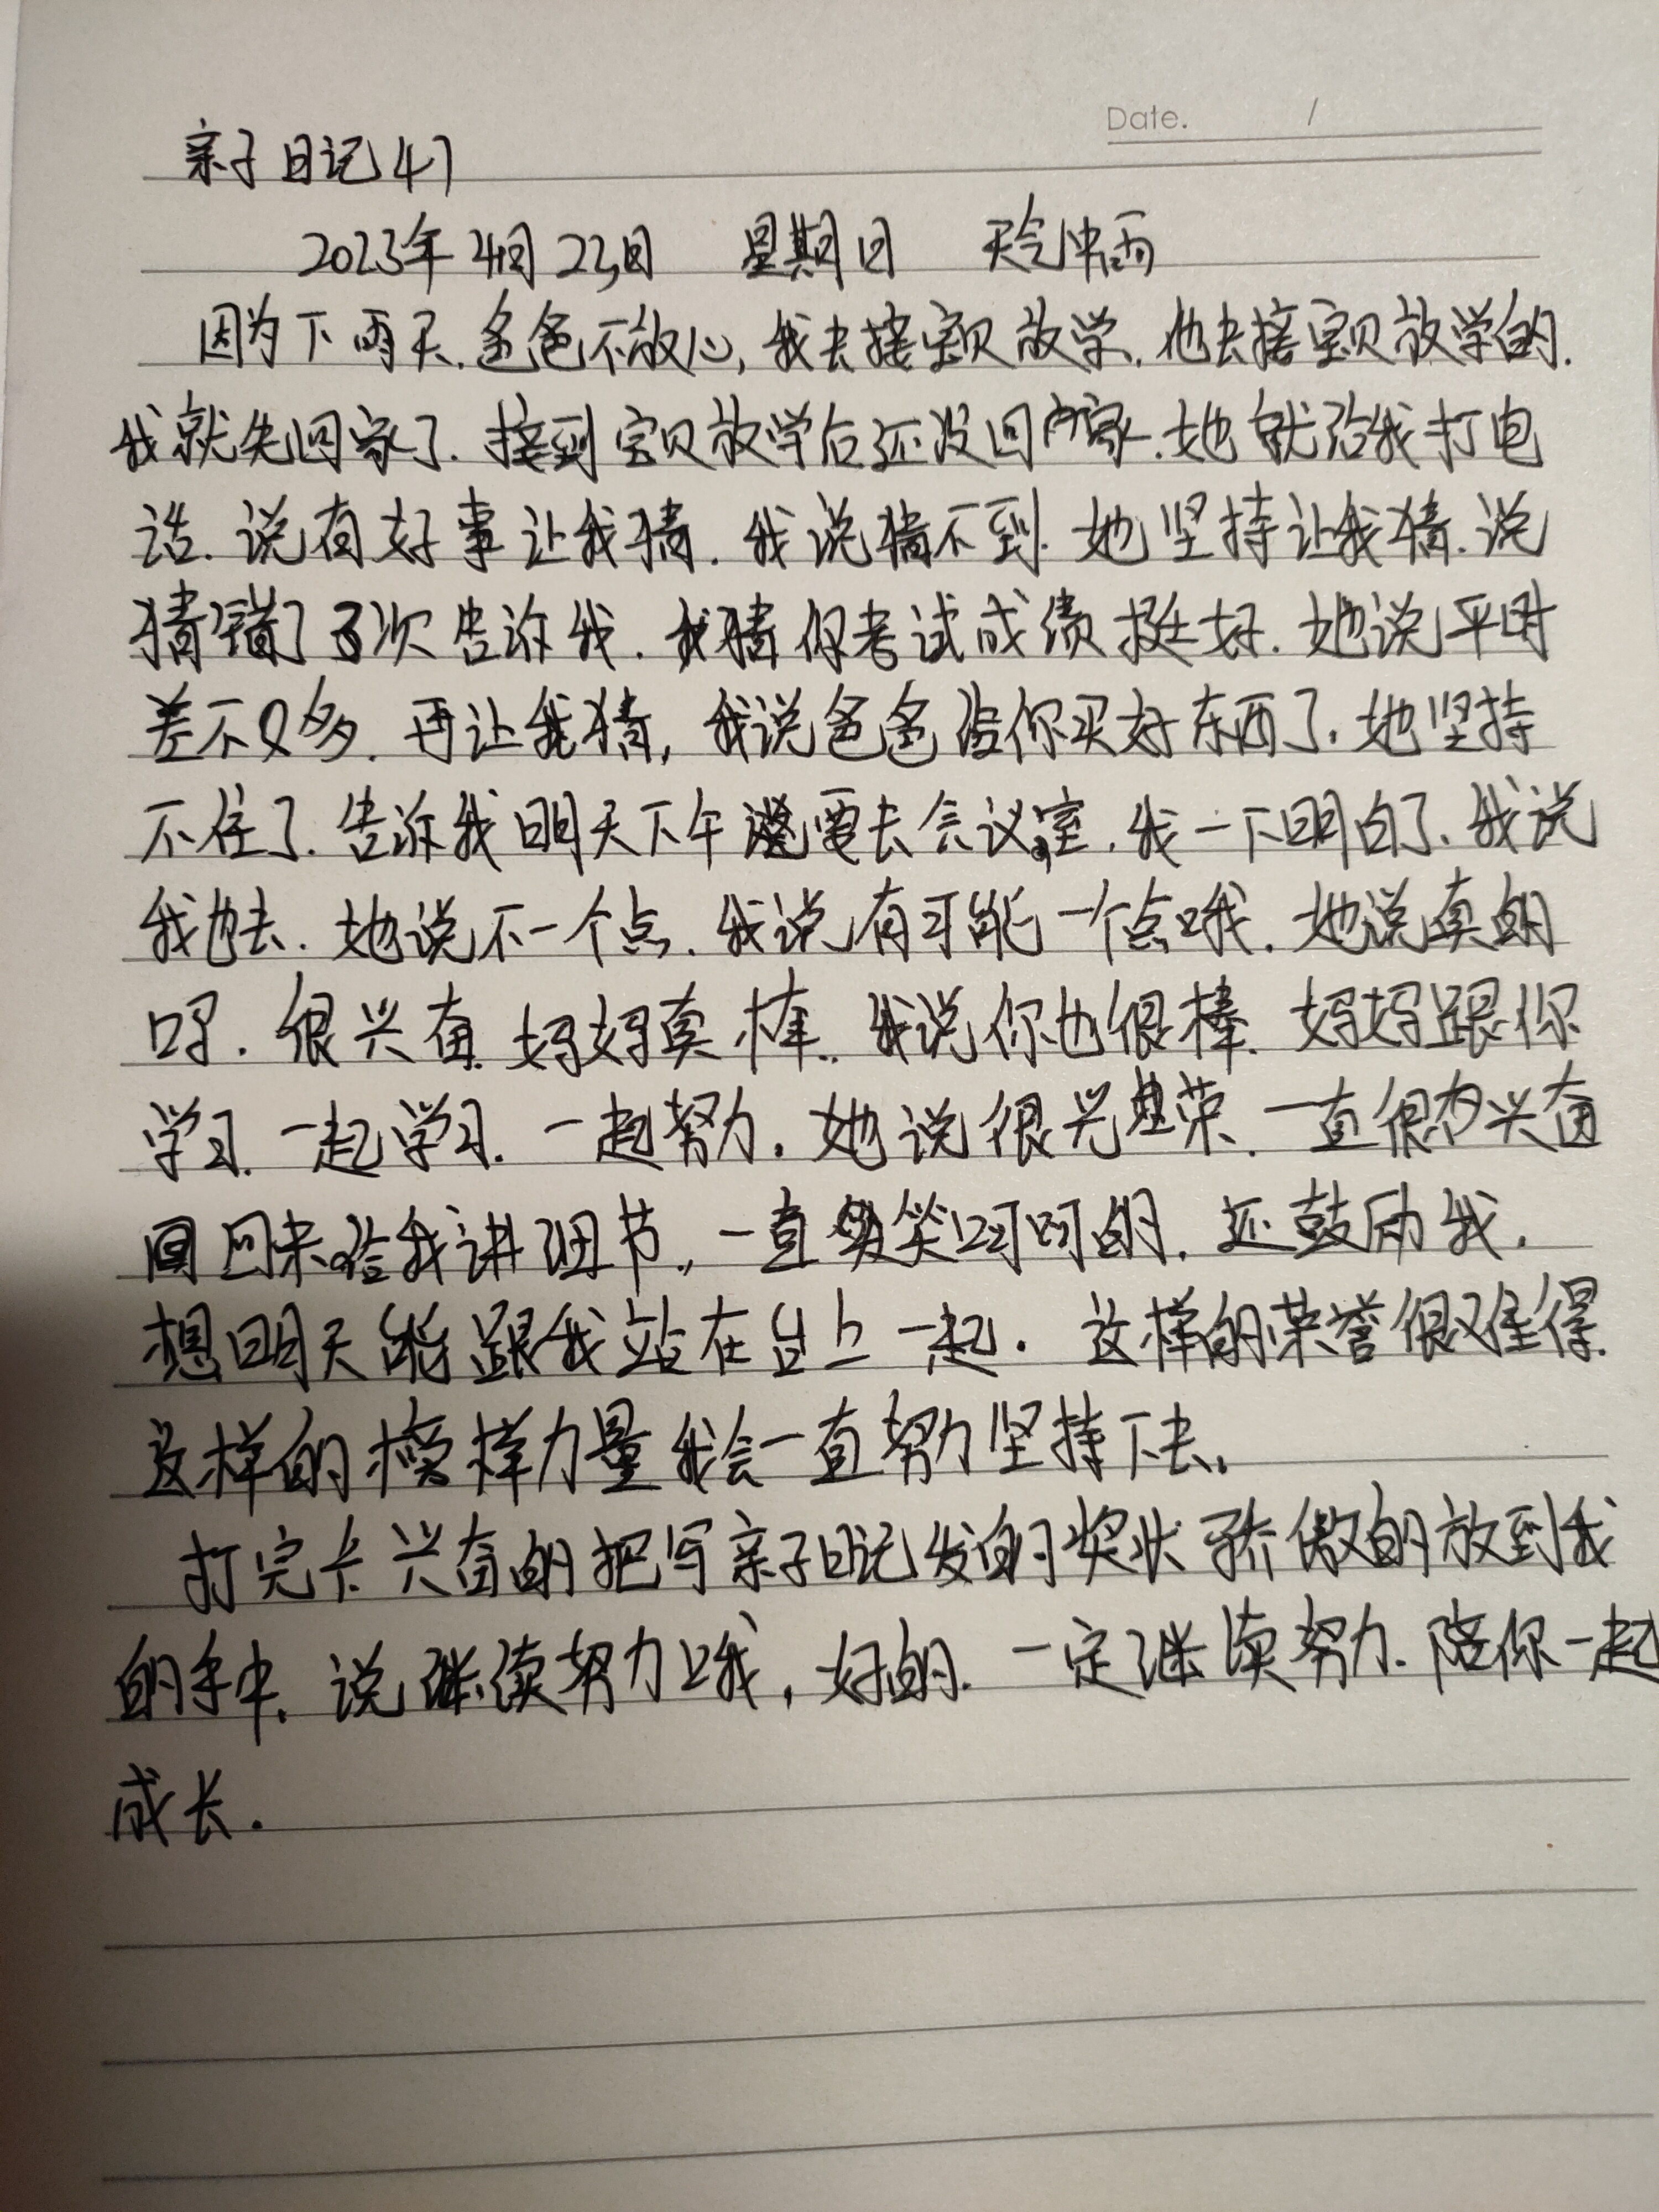 Date. /
亲子日记47
2023年4月23日 星期日 天气中雨
因为下雨天.爸爸不放心,我去接宝贝放学.他去接宝贝放学的.
我就先回家了.接到宝贝放学后还没回家.她就给我打电
话.说有好事让我猜.我说猜不到.她坚持让我猜.说
猜错了3次告诉我.我猜你考试成绩挺好.她说平时
差不多.再让我猜,我说爸爸给你买好东西了.她坚持
不住了.告诉我明天下午要去会议室.我一下明白了.我说
我也去.她说不一个点.我说有可能一个点哦.她说真的
吗.很兴奋.妈妈真棒.我说你也很棒.妈妈跟你
学习.一起学习.一起努力.她说很光荣.一直很兴奋
回来给我讲细节,一直笑呵呵的.还鼓励我.
想明天能跟我站在台上一起.这样的荣誉很难得.
这样的榜样力量我会一直努力坚持下去.
打完卡兴奋的把写亲子日记发的奖状骄傲的放到我
的手中.说继续努力哦,好的.一定继续努力.陪你一起
成长.